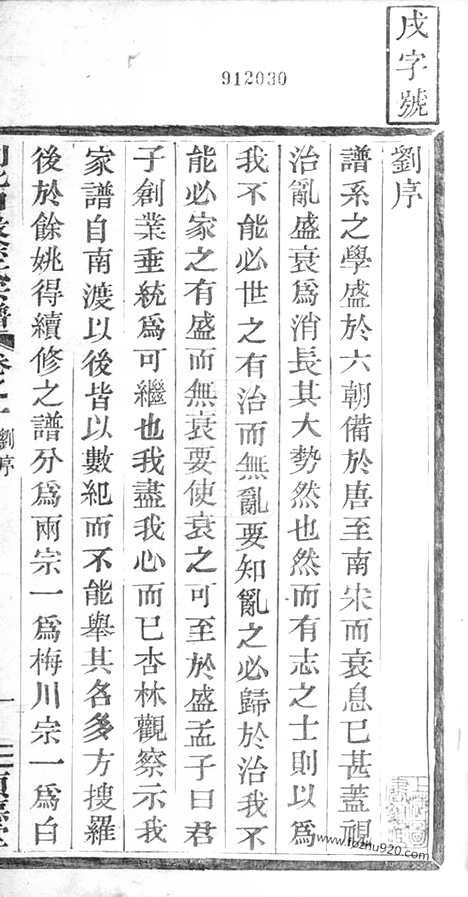 戌字號
912030
劉序
譜系之學盛於六朝備於唐至南宋而衰息已甚蓋視
治亂盛衰爲消長其大勢然也然而有志之士則以爲
我不能必世之有治而無亂要知亂之必歸於治我不
能必家之有盛而無衰要使衰之可至於盛孟子曰君
子創業垂統爲可繼也我盡我心而已杏林觀察示我
家譜自南渡以後皆以數紀而不能舉其名多方搜羅
後於餘姚得續修之譜分爲兩宗一爲梅川宗一爲白
劉序
一
www.fozhu920.com